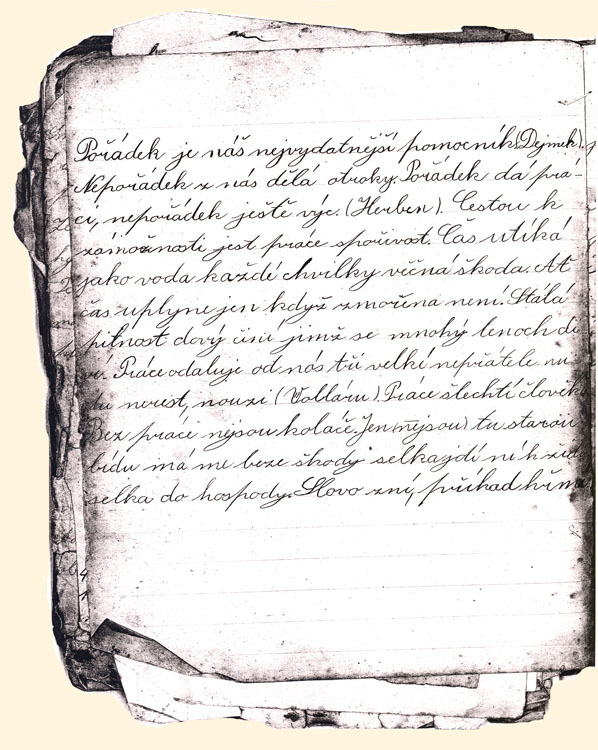 Pořádek je náš nejvydatnější pomocník (Dejmek).
Nepořádek z nás dělá otroky. Pořádek dá prá-
ci, nepořádek ještě výc. (Herben). Cestou k
zámožnosti jest práce spořivost. Čas utíká
jako voda každé chvilky věčná škoda. Ať
čas uplyne jen když zmořena není. Stálá
pilnost divý činí jimž se mnohý lenoch di
ví. Práce odaluje od nás tři velké nepřátele. nu
du neřest, nouzi (Voltáru). Práce šlechtí člověk
Bez práce nejsou koláče. Jen nejsou) tu starou
bídu má me beze škody selka jdi
selka do hospody. Slovo zní, příklad hřím